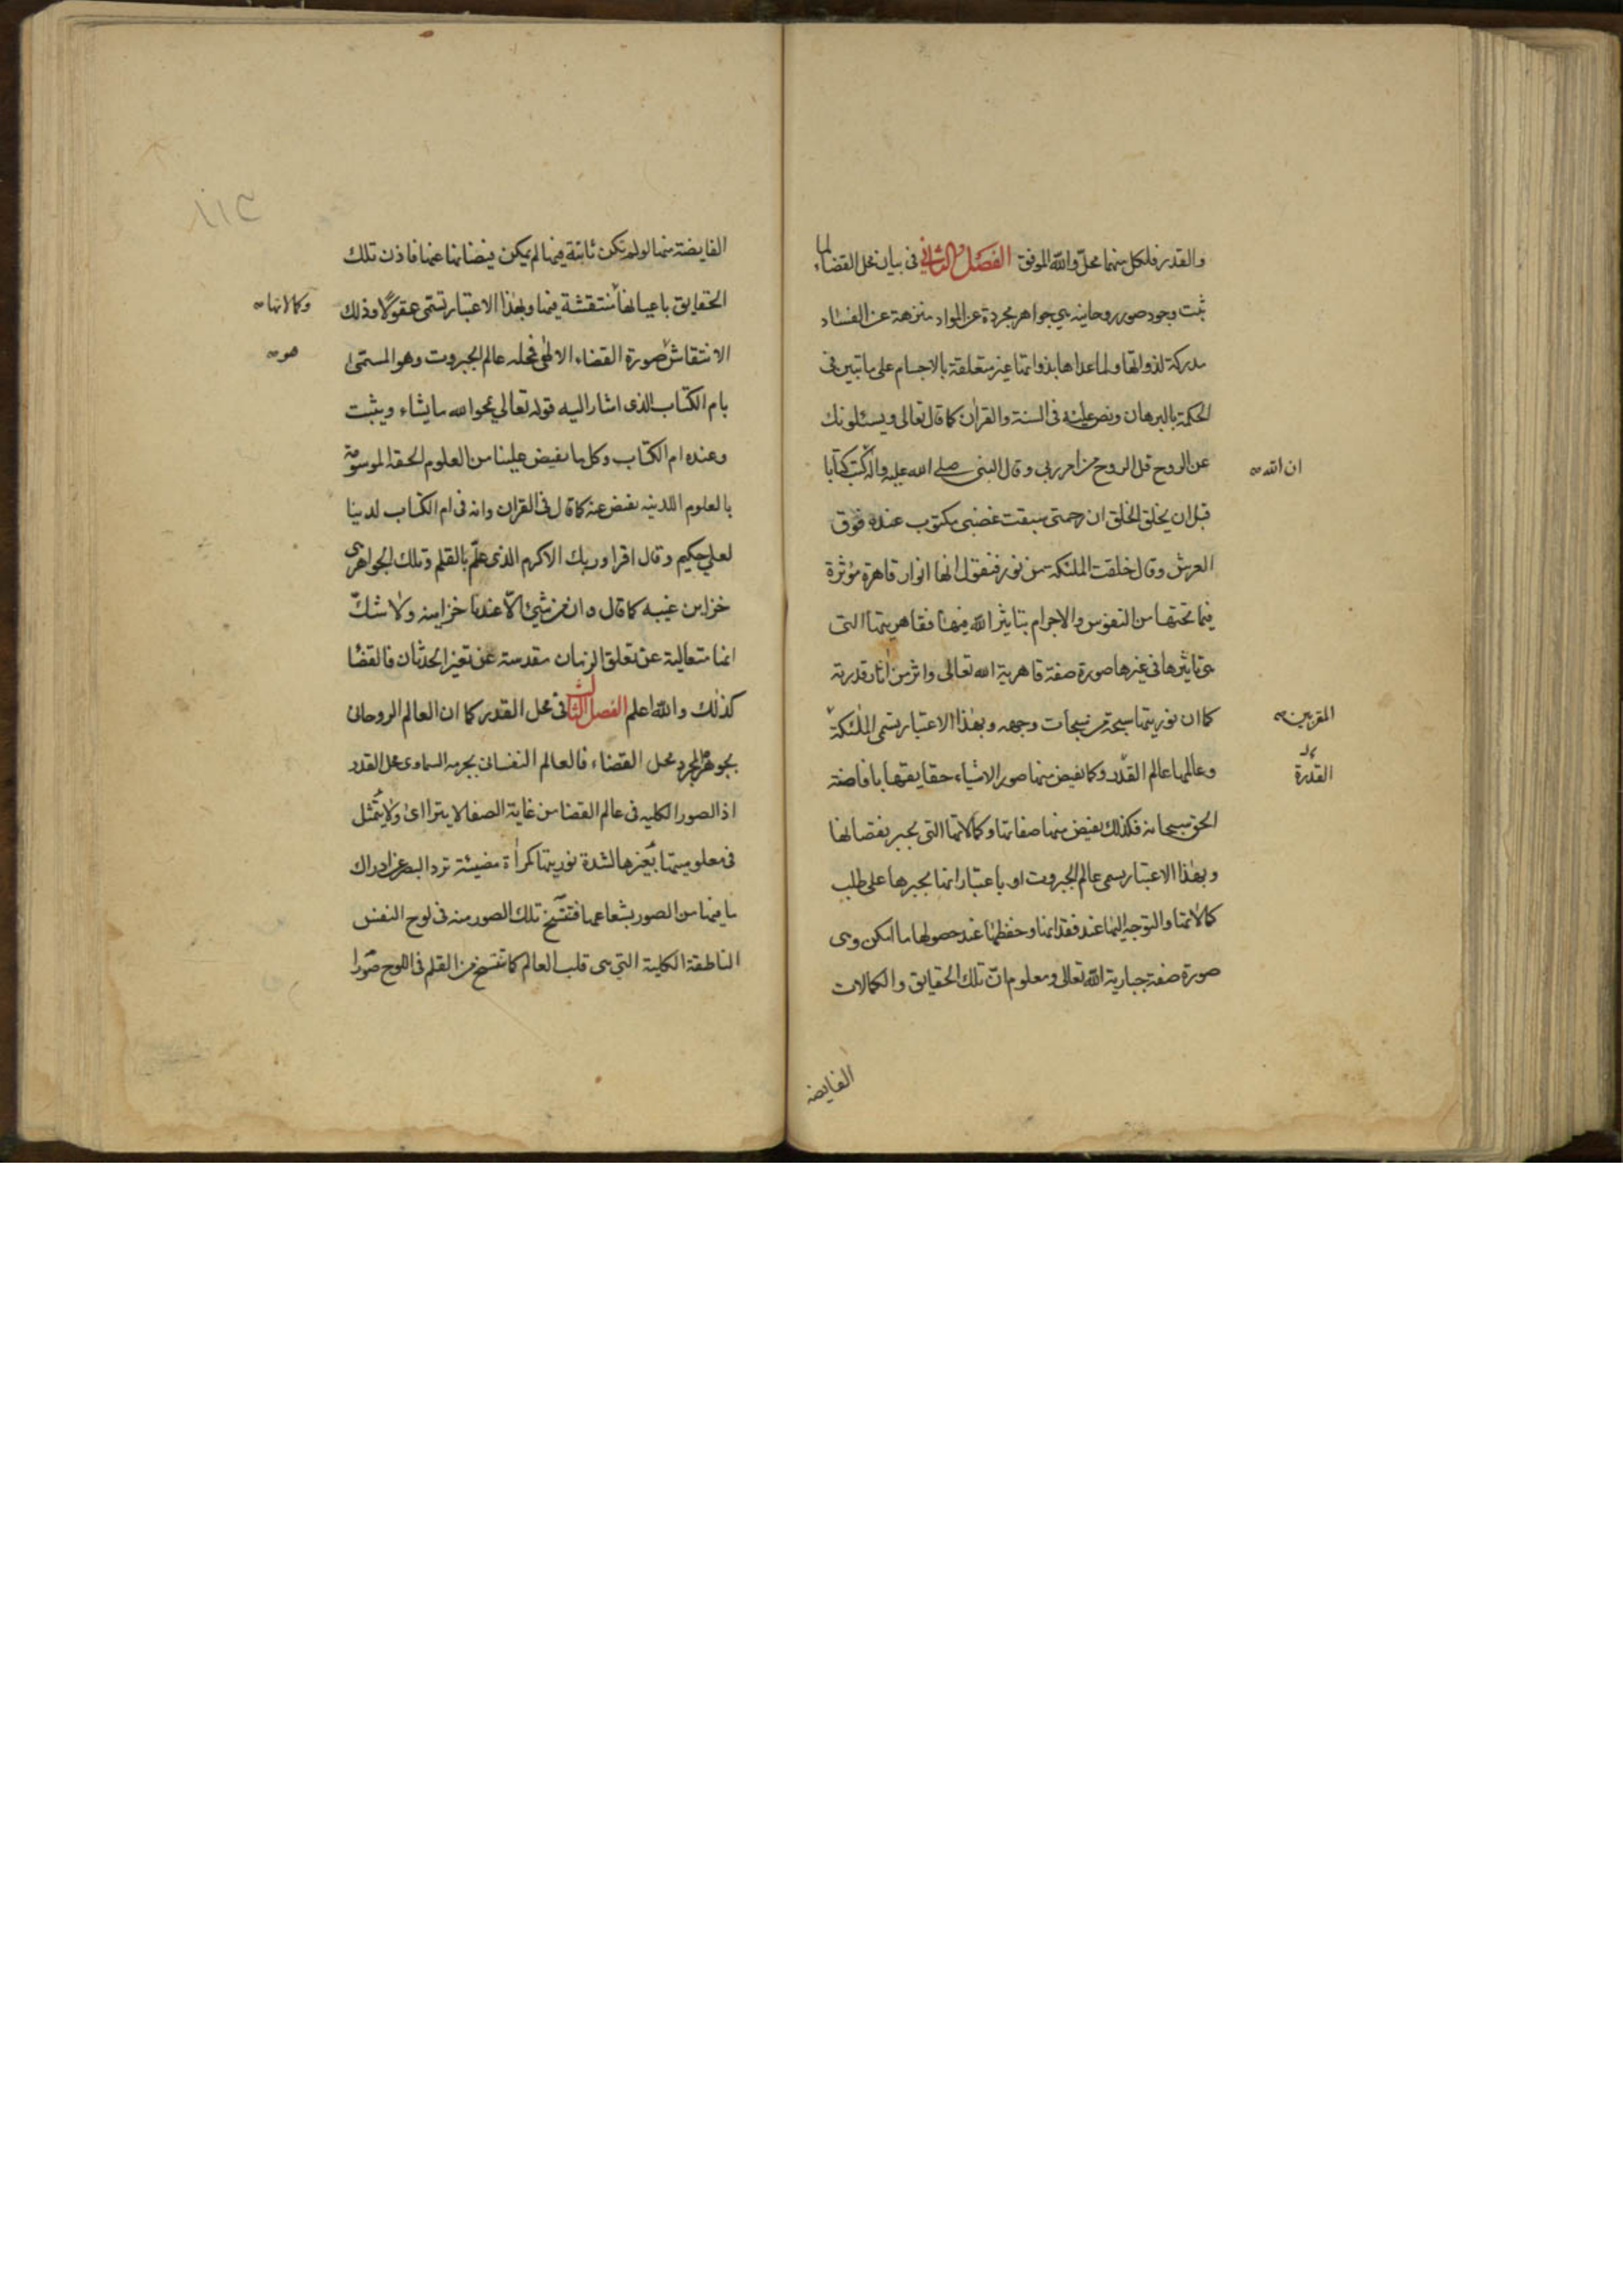 والقدر فلكل منهما محل والله الموفق الفصل الثاني فى بيان محل القضاء لما
ثبت وجود صور روحانيه هي جواهر مجردة عن المواد منزهة عن الفساد
مدركة لذواتها ولما عداها بذواتها غير متعلقة بالاجسام على ما تبين فى
الحكمة بالبرهان ونص عليه فى السنة والقران كما قال تعالى ويسئلونك
عن الروح قل الروح من امر ربى وقال النبى صلى الله عليه واله كتب كتابا
ان الله
قبل ان يخلق الخلق ان رحمتى سبقت غضبى مكتوب عنده فوق
العرش وقال خلقت الملئكة من نور فنقول انها انوار قاهرة مؤثرة
فيما تحتها من النفوس والاجرام بتاثير الله فيها فقاهريتها التى
هى تاثيرها فى غيرها صورة صفة قاهرية الله تعالى واثر من اثار قدرته
كما ان نوريتها سبحة من سبحات وجهه وبهذا الاعتبار تسمى الملئكة
المقربين
وعالمها عالم القدر وكما يفيض منها صور الاشياء حقايقها بافاضة
القدرة
الحق سبحانه فكذلك يفيض منها صفاتها وكمالاتها التى يجبر نقصانها
وبهذا الاعتبار يسمى عالم الجبروت او باعتبار انها يجبرها على طلب
كمالاتها والتوجه اليها عند فقدانها وحفظها عند حصولها ما امكن وهى
صورة صفة جبارية الله تعالى ومعلوم ان تلك الحقايق والكمالات
الفايضه
الفايضة منها لو لم تكن ثابتة فيها لم يمكن فيضانها عنها فاذن تلك
الحقايق باعيانها منتقشة فيها وبهذا الاعتبار تسمى عقولا وذلك
وكمالاتها
الانتقاش صورة القضاء الالهى فمحله عالم الجبروت وهو المسمى
هو
بام الكتاب الذى اشار اليه قوله تعالي يمحوا الله ما يشاء ويثبت
وعنده ام الكتاب وكل ما يفيض علينا من العلوم الحقه الموسومة
بالعلوم اللدينه يفيض عنه كما قال فى القران وانه فى ام الكتاب لدينا
لعلي حكيم وقال اقرا وربك الاكرم الذى علم بالقلم وتلك الجواهر هى
خزاين غيبه كما قال وان من شيئ الا عندنا خزاينه ولا شك
انها متعالية عن تعلق الزمان مقدسة عن تغير الحدثان فالقضا
كذلك والله اعلم الفصل الثالث فى محل القدر كما ان العالم الروحانى
بجوهره المجرد محل القضاء فالعالم النفسانى بجرمه السماوى محل القدر
اذ الصور الكليه فى عالم القضا من غاية الصفا لا يتراائ ولا يتمثل
فى معلوميتها بغيرها لشدة نوريتها كمراة مضيئة ترد البصر عن ادراك
ما فيها من الصور بشعاعها فتنتسخ تلك الصور منه فى لوح النفس
الناطقة الكلية التي هى قلب العالم كما تنتسخ من القلم فى اللوح صورا